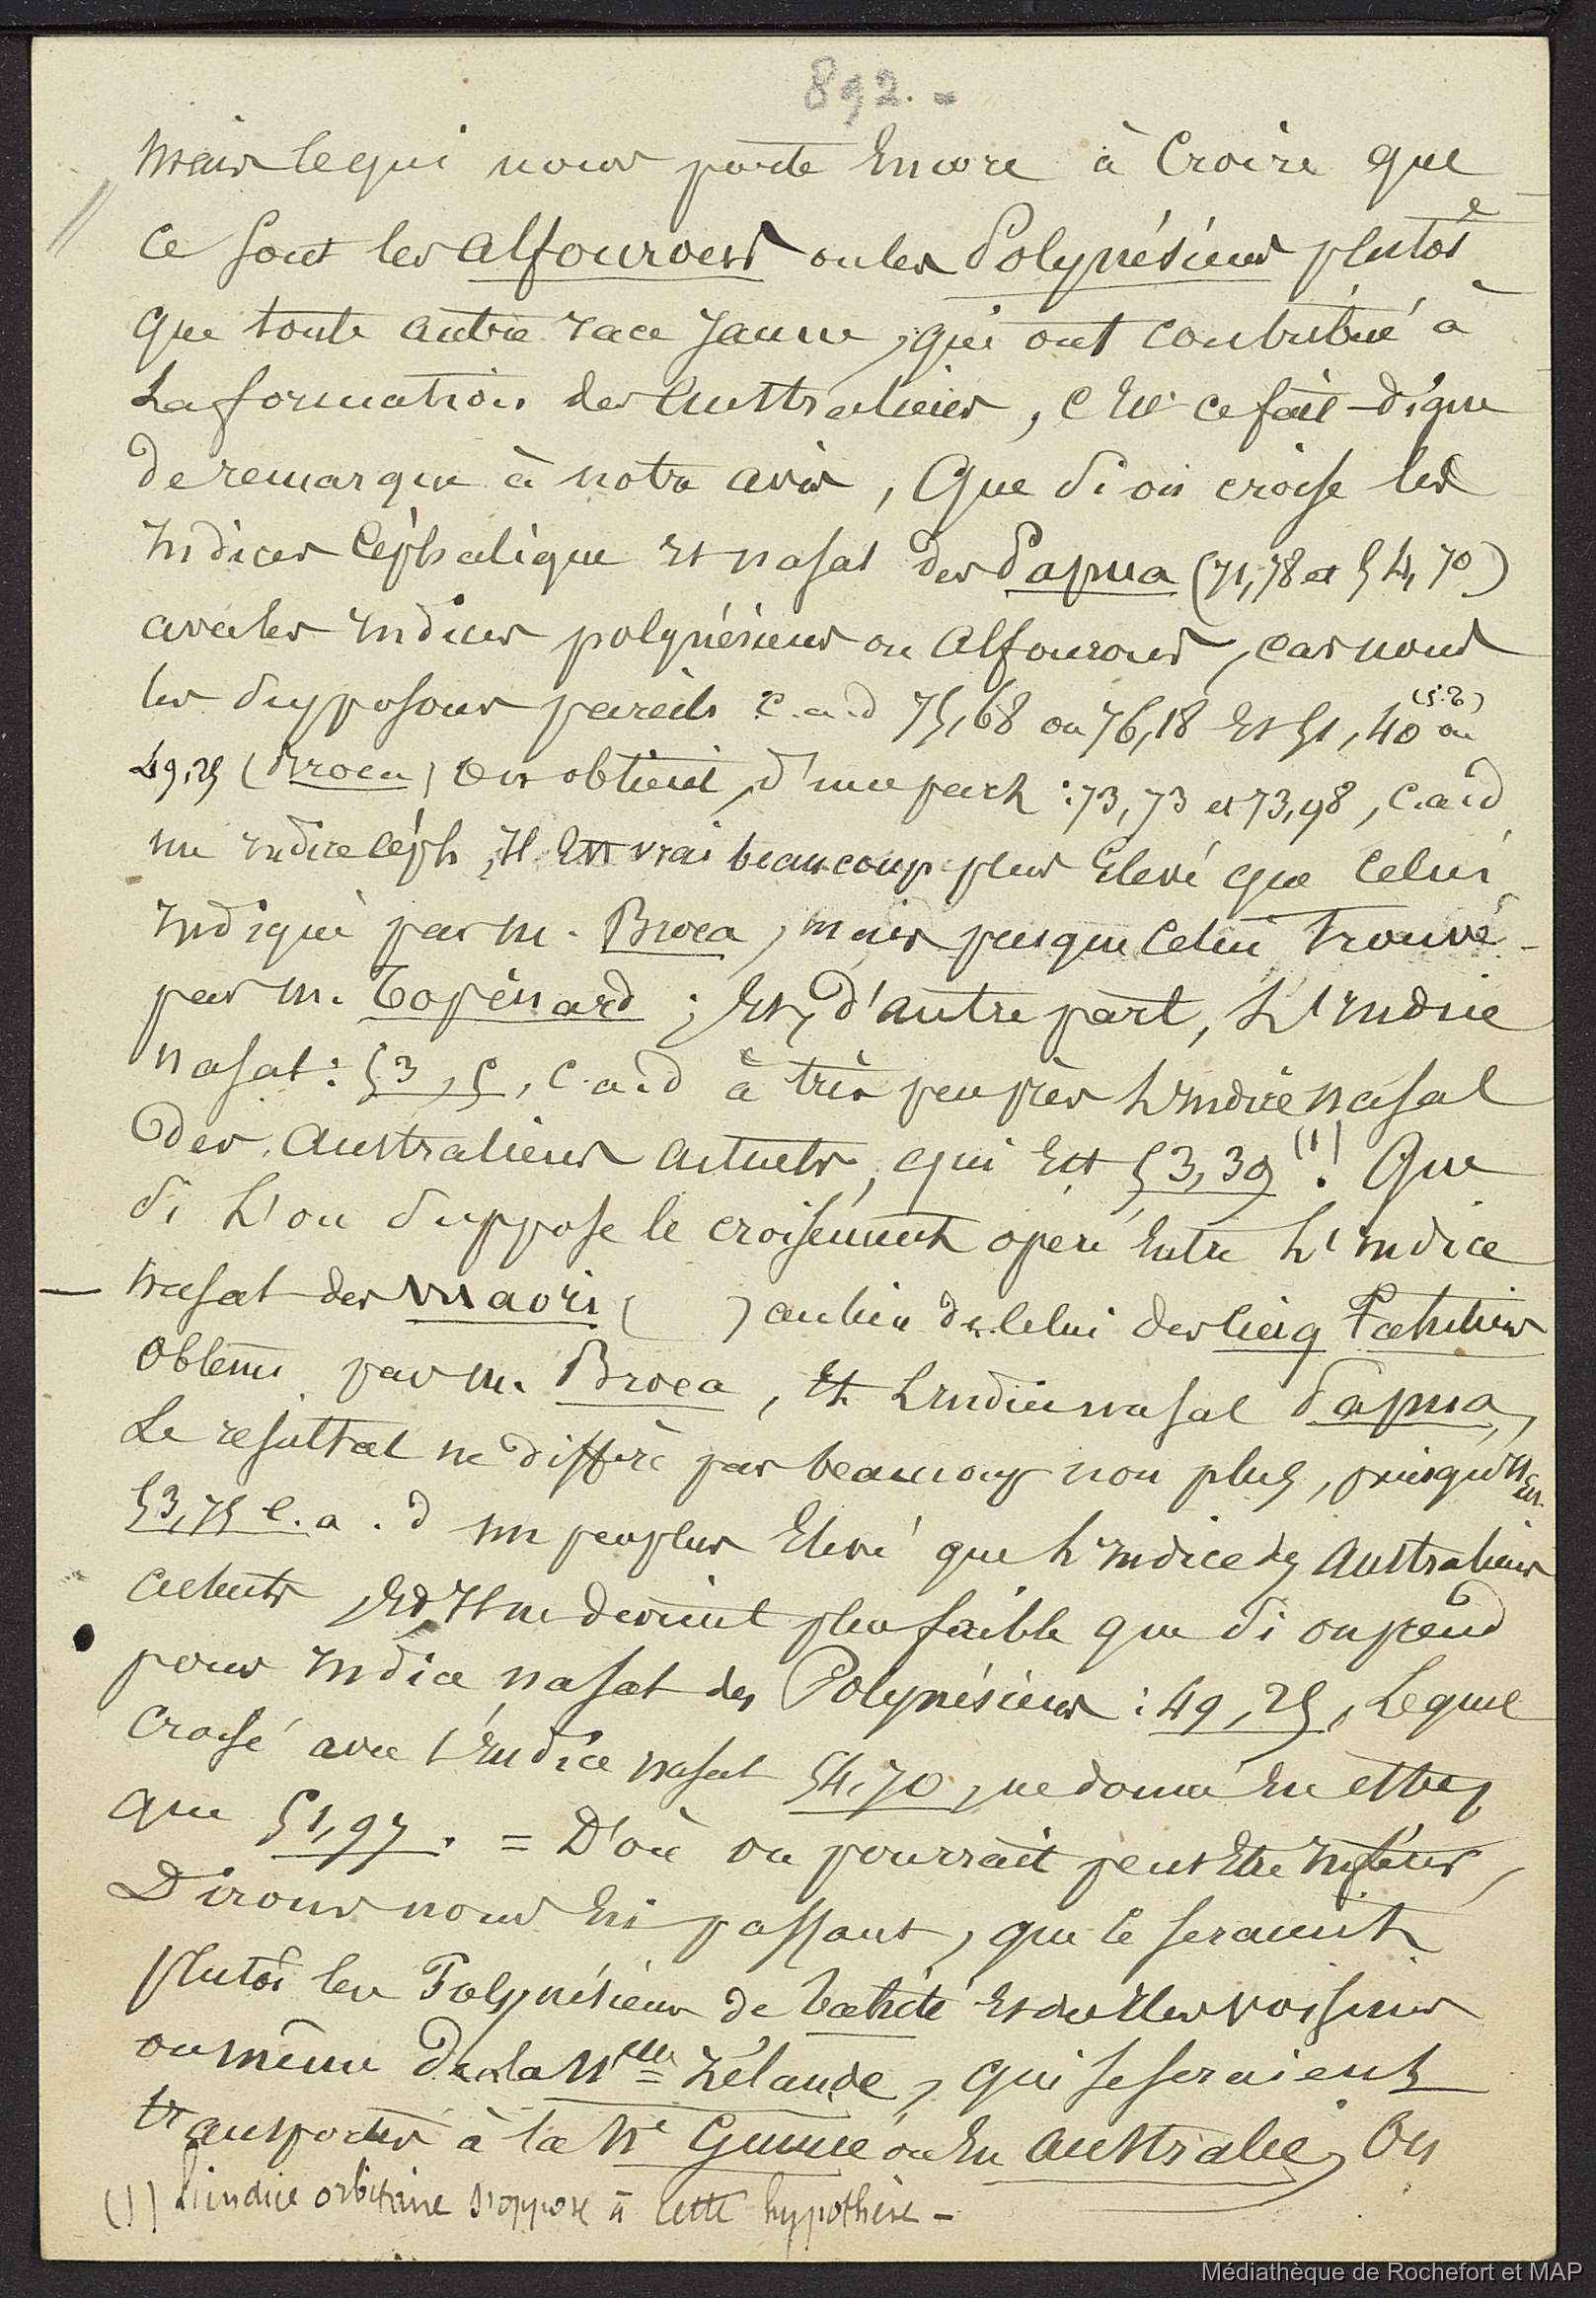 892. =
Mais ce qui nous porte encore à croire que
ce sont les Alfourous ou les Polynésiens plutôt
que toute autre race jaune, qui ont contribué à
la formation des Australiens, c'est ce fait digne
de remarque à notre avis, que si on croise les
indices céphalique et nasal des Papua (71,78 et 54,70)
avec les indices polynésiens ou Alfourous, car nous
les supposons pareils c.a.d 75,68 ou 76,18 et 51,40 ou
49,25 (Broca) on obtient, d'une part : 73,73 et 73,98, c.a.d
un indice céph, il est vrai beaucoup plus élevé que celui
indiqué par M. Broca, mais presque celui trouvé
par M. Topinard ; et, d'autre part, l'indice
nasal : 53,5, c.a.d à très peu près l'indice nasal
des Australiens actuels, qui est 53,39 (1)! Que
si l'on suppose le croisement opéré entre l'indice
nasal des Maori ( ) au lieu de celui des cinq Tahitiens
obtenu par M. Broca, et l'indice nasal Papua,
le résultat ne diffère pas beaucoup non plus, puisqu'il est
53,75 c.a.d un peu plus élevé que l'indice des Australiens
actuels, et il ne devient plus faible que si on prend
pour indice nasal des Polynésiens : 49,25, lequel
croisé avec l'indice nasal 54,70, ne donne en effet
que 51,97. = D'où on pourrait peut être inférer,
Dirons nous en passant, que ce seraient
plutôt les Polynésiens de Tahiti et des îles voisines
ou même de la Nlle Zélande, qui se seraient
transportés à la Nle Guinée ou en Australie, Ou
(1) L'indice orbitaire s'oppose à cette hypothèse -
Médiathèque de Rochefort et MAP